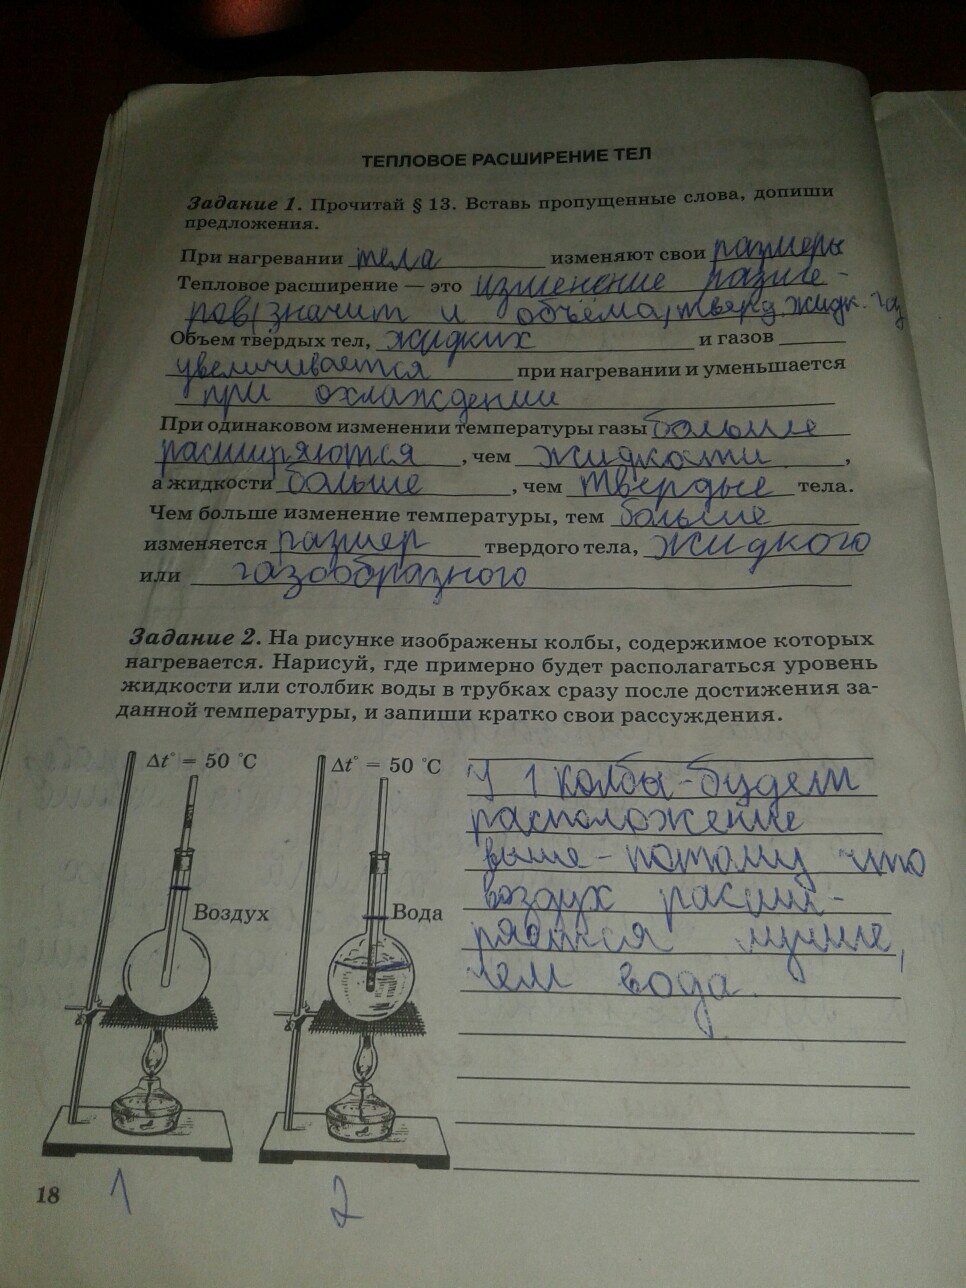 ТЕПЛОВОЕ РАСШИРЕНИЕ ТЕЛ
Задание 1. Прочитай § 13. Вставь пропущенные слова, допиши
предложения.
При нагревании тела изменяют свои размеры
Тепловое расширение — это изменение разме-
ров(значит и объёма, тверд. жидк. газ
Объем твердых тел, жидких и газов
увеличивается при нагревании и уменьшается
при охлаждении
При одинаковом изменении температуры газы больше
расширяются, чем жидкости,
а жидкости больше, чем твердые тела.
Чем больше изменение температуры, тем больше
изменяется размер твердого тела, жидкого
или газообразного
Задание 2. На рисунке изображены колбы, содержимое которых
нагревается. Нарисуй, где примерно будет располагаться уровень
жидкости или столбик воды в трубках сразу после достижения за-
данной температуры, и запиши кратко свои рассуждения.
Δt° = 50 °C
Δt° = 50 °C
Воздух
Вода
У 1 колбы - будет
расположение
выше - потому что
воздух расши-
ряется лучше,
чем вода.
18
1
2